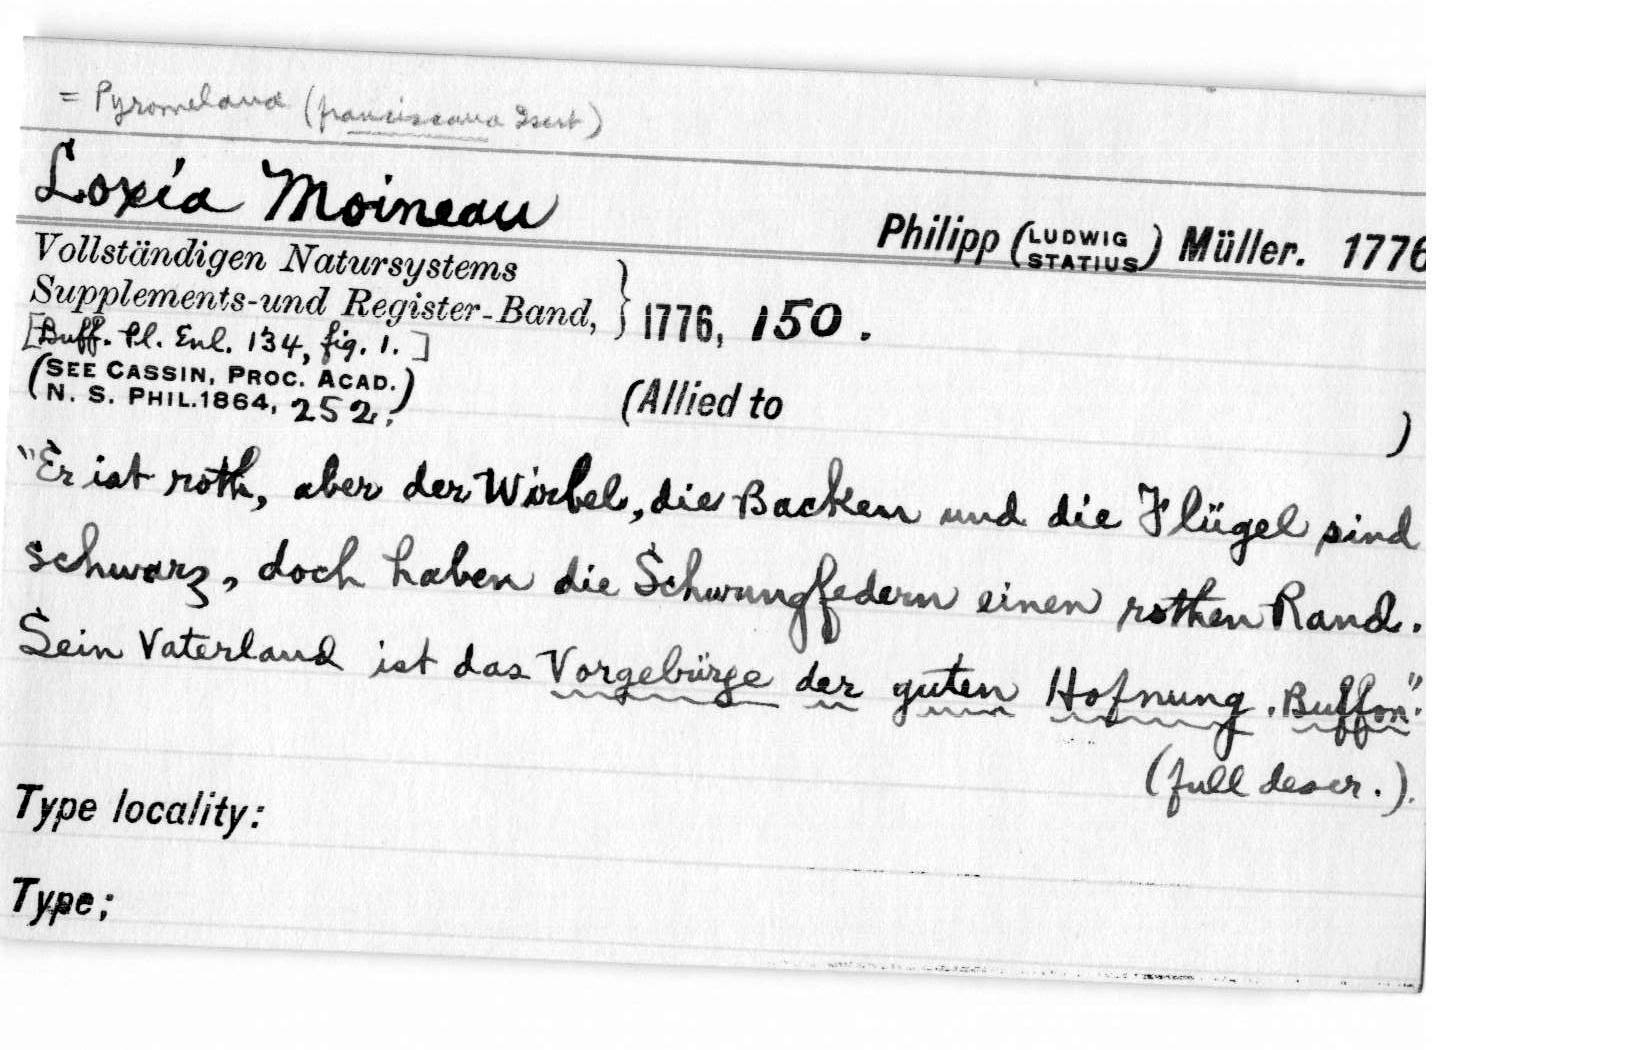 = Pyromelana (franciscana Isert)
Loxia Moineau
Philipp (LUDWIG STATIUS) Müller. 1776
Vollständigen Natursystems
Supplements-und Register-Band, } 1776, 150.
[Buff. Pl. Enl. 134, fig. 1.]
(SEE CASSIN, PROC. ACAD.
N. S. PHIL. 1864, 252,)
(Allied to )
"Er ist roth, aber der Wirbel, die Backen und die Flügel sind
schwarz, doch haben die Schwungfedern einen rothen Rand.
Sein Vaterland ist das Vorgebürge der guten Hofnung. Buffon."
(full descr.).
Type locality:
Type;